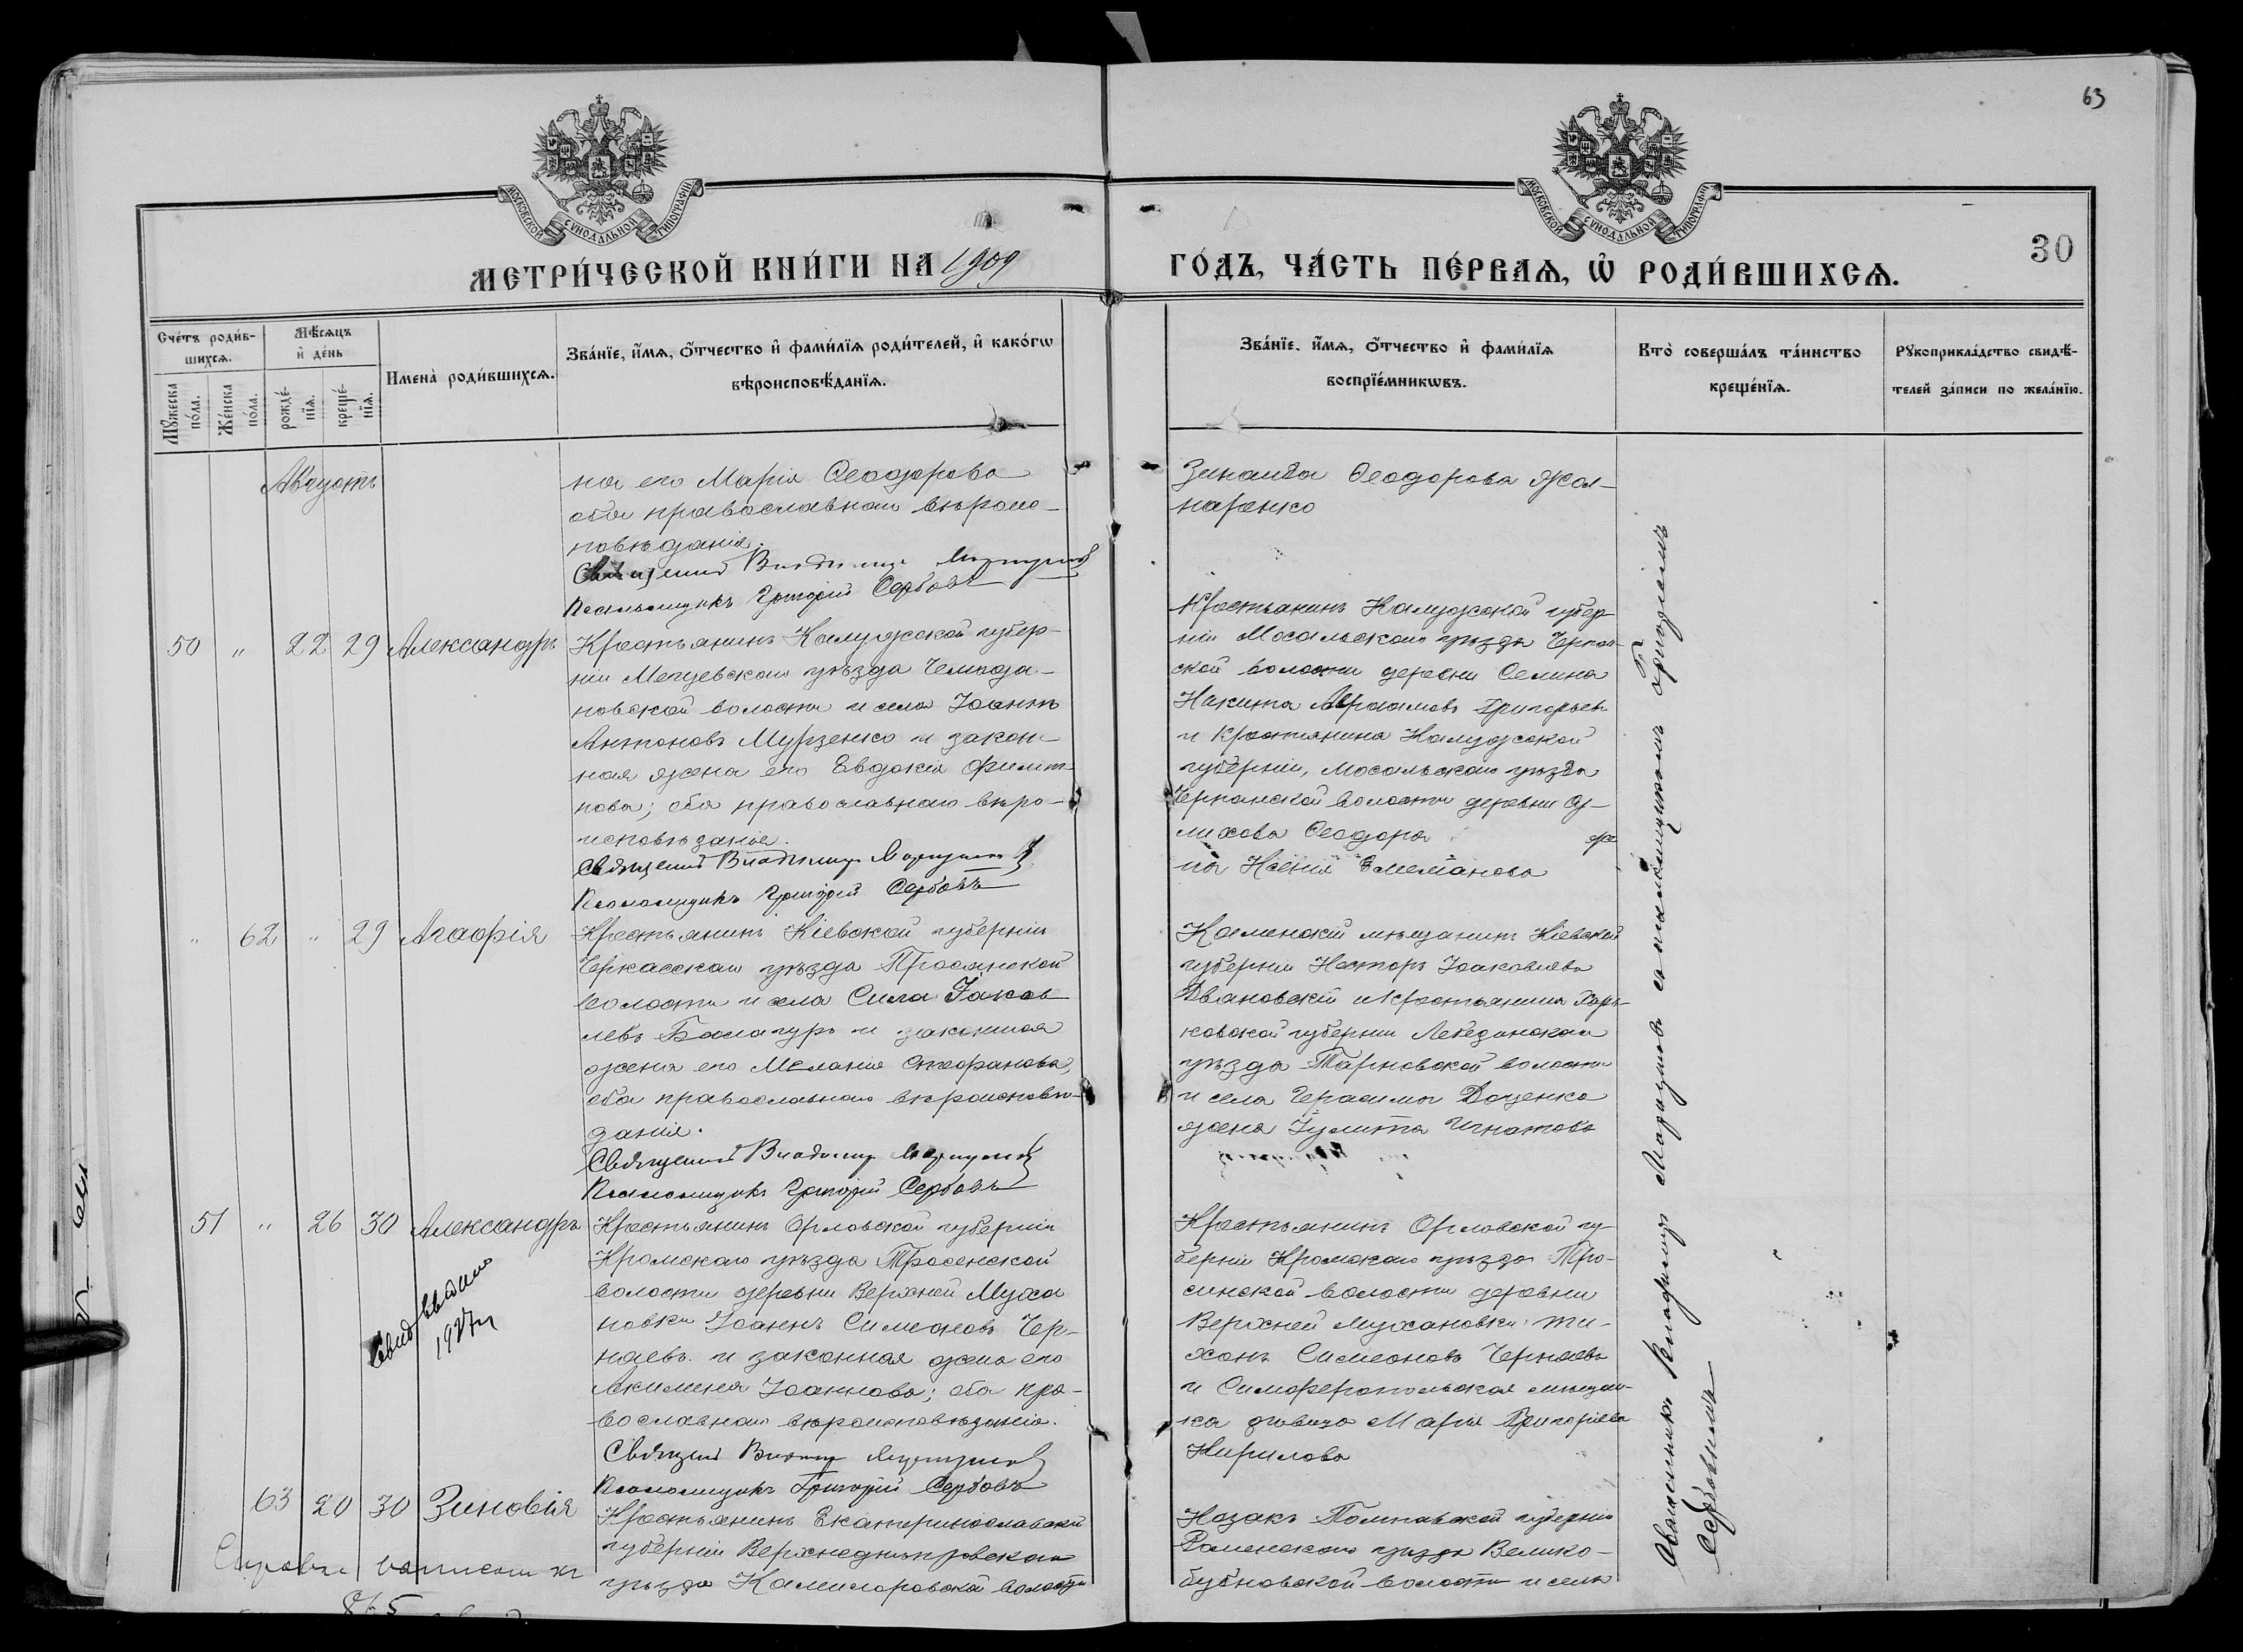 63
МОСКОВСКОЙ СУНОДАЛЬНОЙ ТИПОГРАФІИ
МОСКОВСКОЙ СУНОДАЛЬНОЙ ТИПОГРАФІИ
30
МЕТРИ́ЧЕСКОЙ КНИ́ГИ НА 1909
ГО́ДЪ, ЧА́СТЬ ПЕ́РВАѦ, Ѡ҆ РОДИ́ВШИХСѦ.
Сче́тъ роди́в-
шихсѧ.
Мꙋжеска по́ла.
Же́нска по́ла.
Мѣ́сѧцъ
и҆ де́нь
рожде́-
нїѧ.
креще́-
нїѧ.
И҆мена̀ роди́вшихсѧ.
Зва́нїе, и҆́мѧ, о҆́тчество и҆ фами́лїѧ роди́телей, и҆ како́гѡ
вѣроисповѣ́данїѧ.
Зва́нїе, и҆́мѧ, о҆́тчество и҆ фами́лїѧ
воспрїе́мникѡвъ.
Кто̀ соверша́лъ та́инство
креще́нїѧ.
Рꙋкоприкла́дство свидѣ́-
телей за́писи по жела́нїю.
Августъ
на его Марія Ѳеодорова
оба православнаго вѣроис-
повѣданія.
Священникъ Владимиръ
Псаломщикъ Григорій Сербовъ
Зинаида Ѳеодорова Жол-
наренко
50 " 22 29 Александръ
Крестьянинъ Калужской губер-
ніи Мещевскаго уѣзда
новской волости и села Іоаннъ
Антоновъ Мурзенко и закон-
ная жена его Евдокія Филип-
пова; оба православнаго вѣро-
исповѣданія.
Священникъ Владимиръ
Псаломщикъ Григорій Сербовъ
Крестьянинъ Калужской губер-
ніи Мосальскаго уѣзда
ской волости деревни Селина
Никита Авраамовъ Григорьевъ
и крестьянина Калужской
губерніи, Мосальскаго уѣзда
волости деревни
Ѳеодора же
на Ксенія Емеліанова
" 62 " 29 Агаѳія
Крестьянинъ Кіевской губерніи
Черкасскаго уѣзда
волости и села Сила Іаков
левъ Балагуръ и законная
жена его Меланія Стефанова,
оба православнаго вѣроисповѣ-
данія.
Священникъ Владимиръ
Псаломщикъ Григорій Сербовъ
Каменскій мѣщанинъ Кіевской
губерніи Несторъ Іаковлевъ
и крестьянина Харь-
ковской губерніи Лебединскаго
уѣзда волости
и села Герасима Доценко
жена Іулитта Игнатова
51 " 26 30 Александръ
Свид. выдано
Крестьянинъ Орловской губерніи
Кромскаго уѣзда Тросенской
волости деревни Верхней Муха
новки Іоаннъ Симеоновъ Чер-
няевъ и законная жена его
Акилина Іоаннова; оба пра-
вославнаго вѣроисповѣданія.
Священникъ
Псаломщикъ Григорій Сербовъ
Крестьянинъ Орловской гу-
берніи Кромскаго уѣзда Тро-
синской волости деревни
Верхней Мухановки Ти-
хонъ Симеоновъ Черняевъ
и Симферопольская мѣщан-
ка дѣвица Марія Григоріева
Кирилова
63 20 30 Зиновія
Крестьянинъ Екатеринославской
губерніи Верхнеднѣпровскаго
уѣзда волости
Козакъ Полтавской губерніи
Роменскаго уѣзда Велико-
бубновской волости и села
Священникъ Владимиръ съ псаломщикомъ Григоріемъ
Сербовымъ